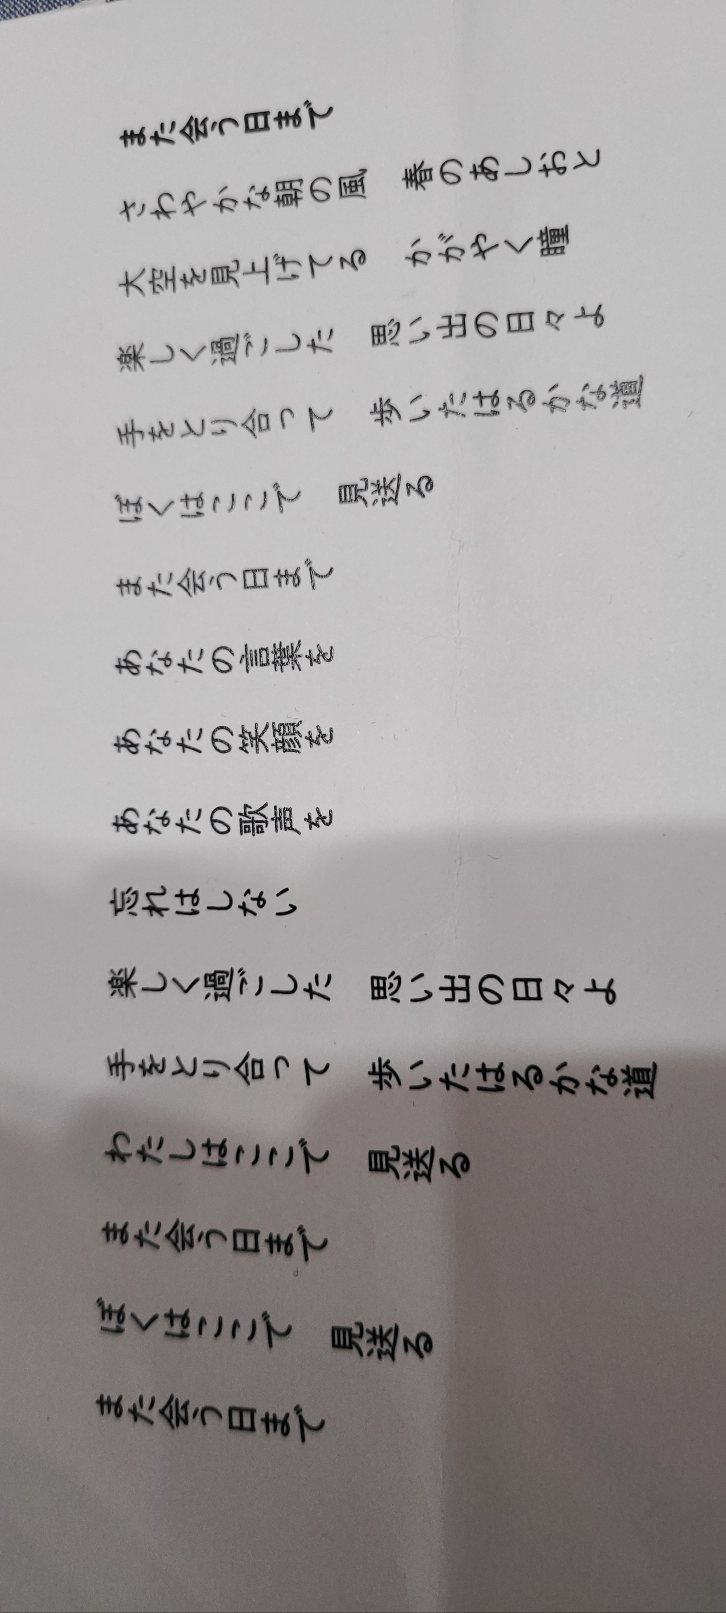 また会う日まで
さわやかな朝の風　春のあしおと
大空を見上げてる　かがやく瞳
楽しく過ごした　思い出の日々よ
手をとり合って　歩いたはるかな道
ぼくはここで　見送る
また会う日まで
あなたの言葉を
あなたの笑顔を
あなたの歌声を
忘れはしない
楽しく過ごした　思い出の日々よ
手をとり合って　歩いたはるかな道
わたしはここで　見送る
また会う日まで
ぼくはここで　見送る
また会う日まで